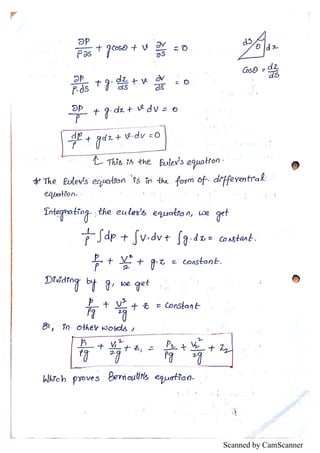 ∂P/ρ∂s + g cosθ + v ∂v/∂s = 0
ds θ dz
cosθ = dz/ds
∂P/ρ.ds + g. dz/ds + v dv/ds = 0
∂P/ρ + g.dz + v dv = 0
dP/ρ + gdz + v.dv = 0
This is the Euler's equation.
* The Euler's equation is in the form of differventral
equation.
Integrating, the euler's equation, we get
1/ρ ∫dp + ∫v.dv + ∫g.dz = constant.
P/ρ + v²/2 + g.z = constant.
Dividing by g, we get
P/ρg + v²/2g + z = constant
or, in other words,
P₁/ρg + V₁²/2g + z₁ = P₂/ρg + V₂²/2g + z₂
which proves Bernoulli's equation.
Scanned by CamScanner